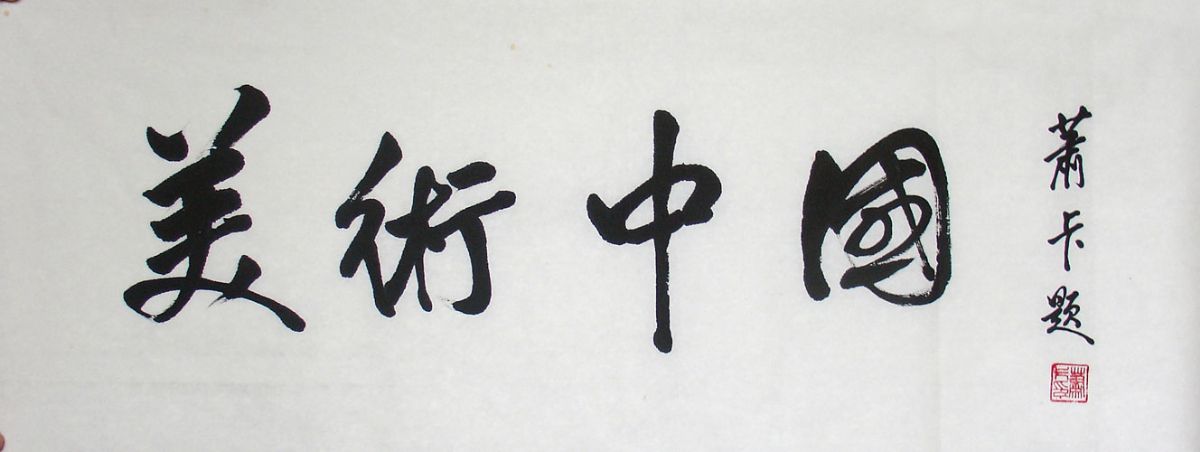 美術中國
蕭卡題